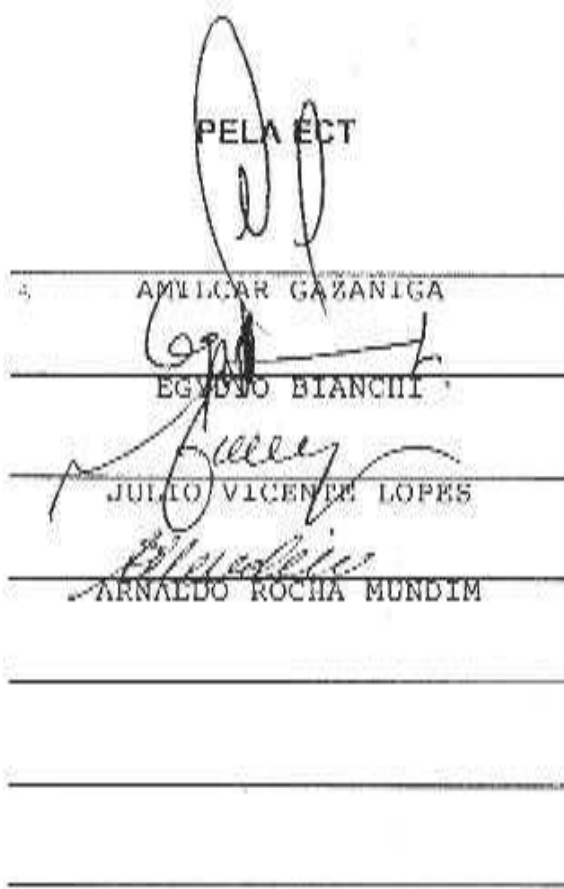 PELA ECT
AMILCAR GAZANIGA
EGYDIO BIANCHI
JULIO VICENTE LOPES
ARNALDO ROCHA MUNDIM